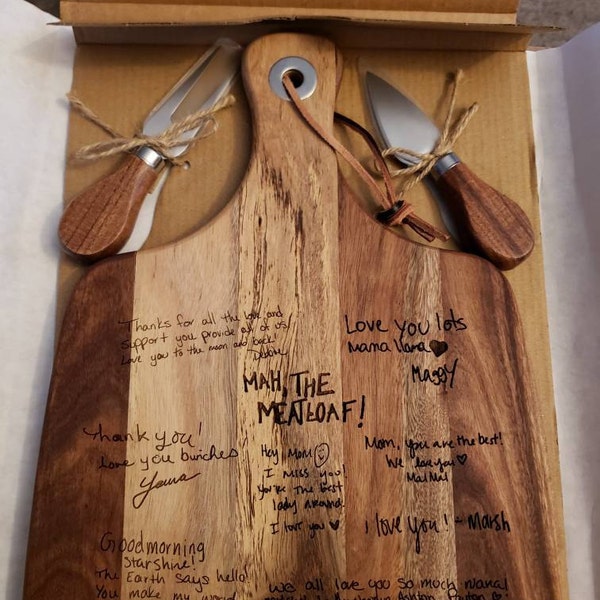 Thanks for all the love and
support you provide all of us
Love you to the moon and back
Debbie
Love you lots
Mama
Maggy
MAH, THE
MEATLOAF!
Thank you!
Love you bunches
Hey Mom
I miss you!
you're the best
lady around.
I love you
Mom, you are the best!
We love you
I love you! - Marsh
Goodmorning
Starshine!
The Earth says hello!
You make my world
We all love you so much nana!
Ashton